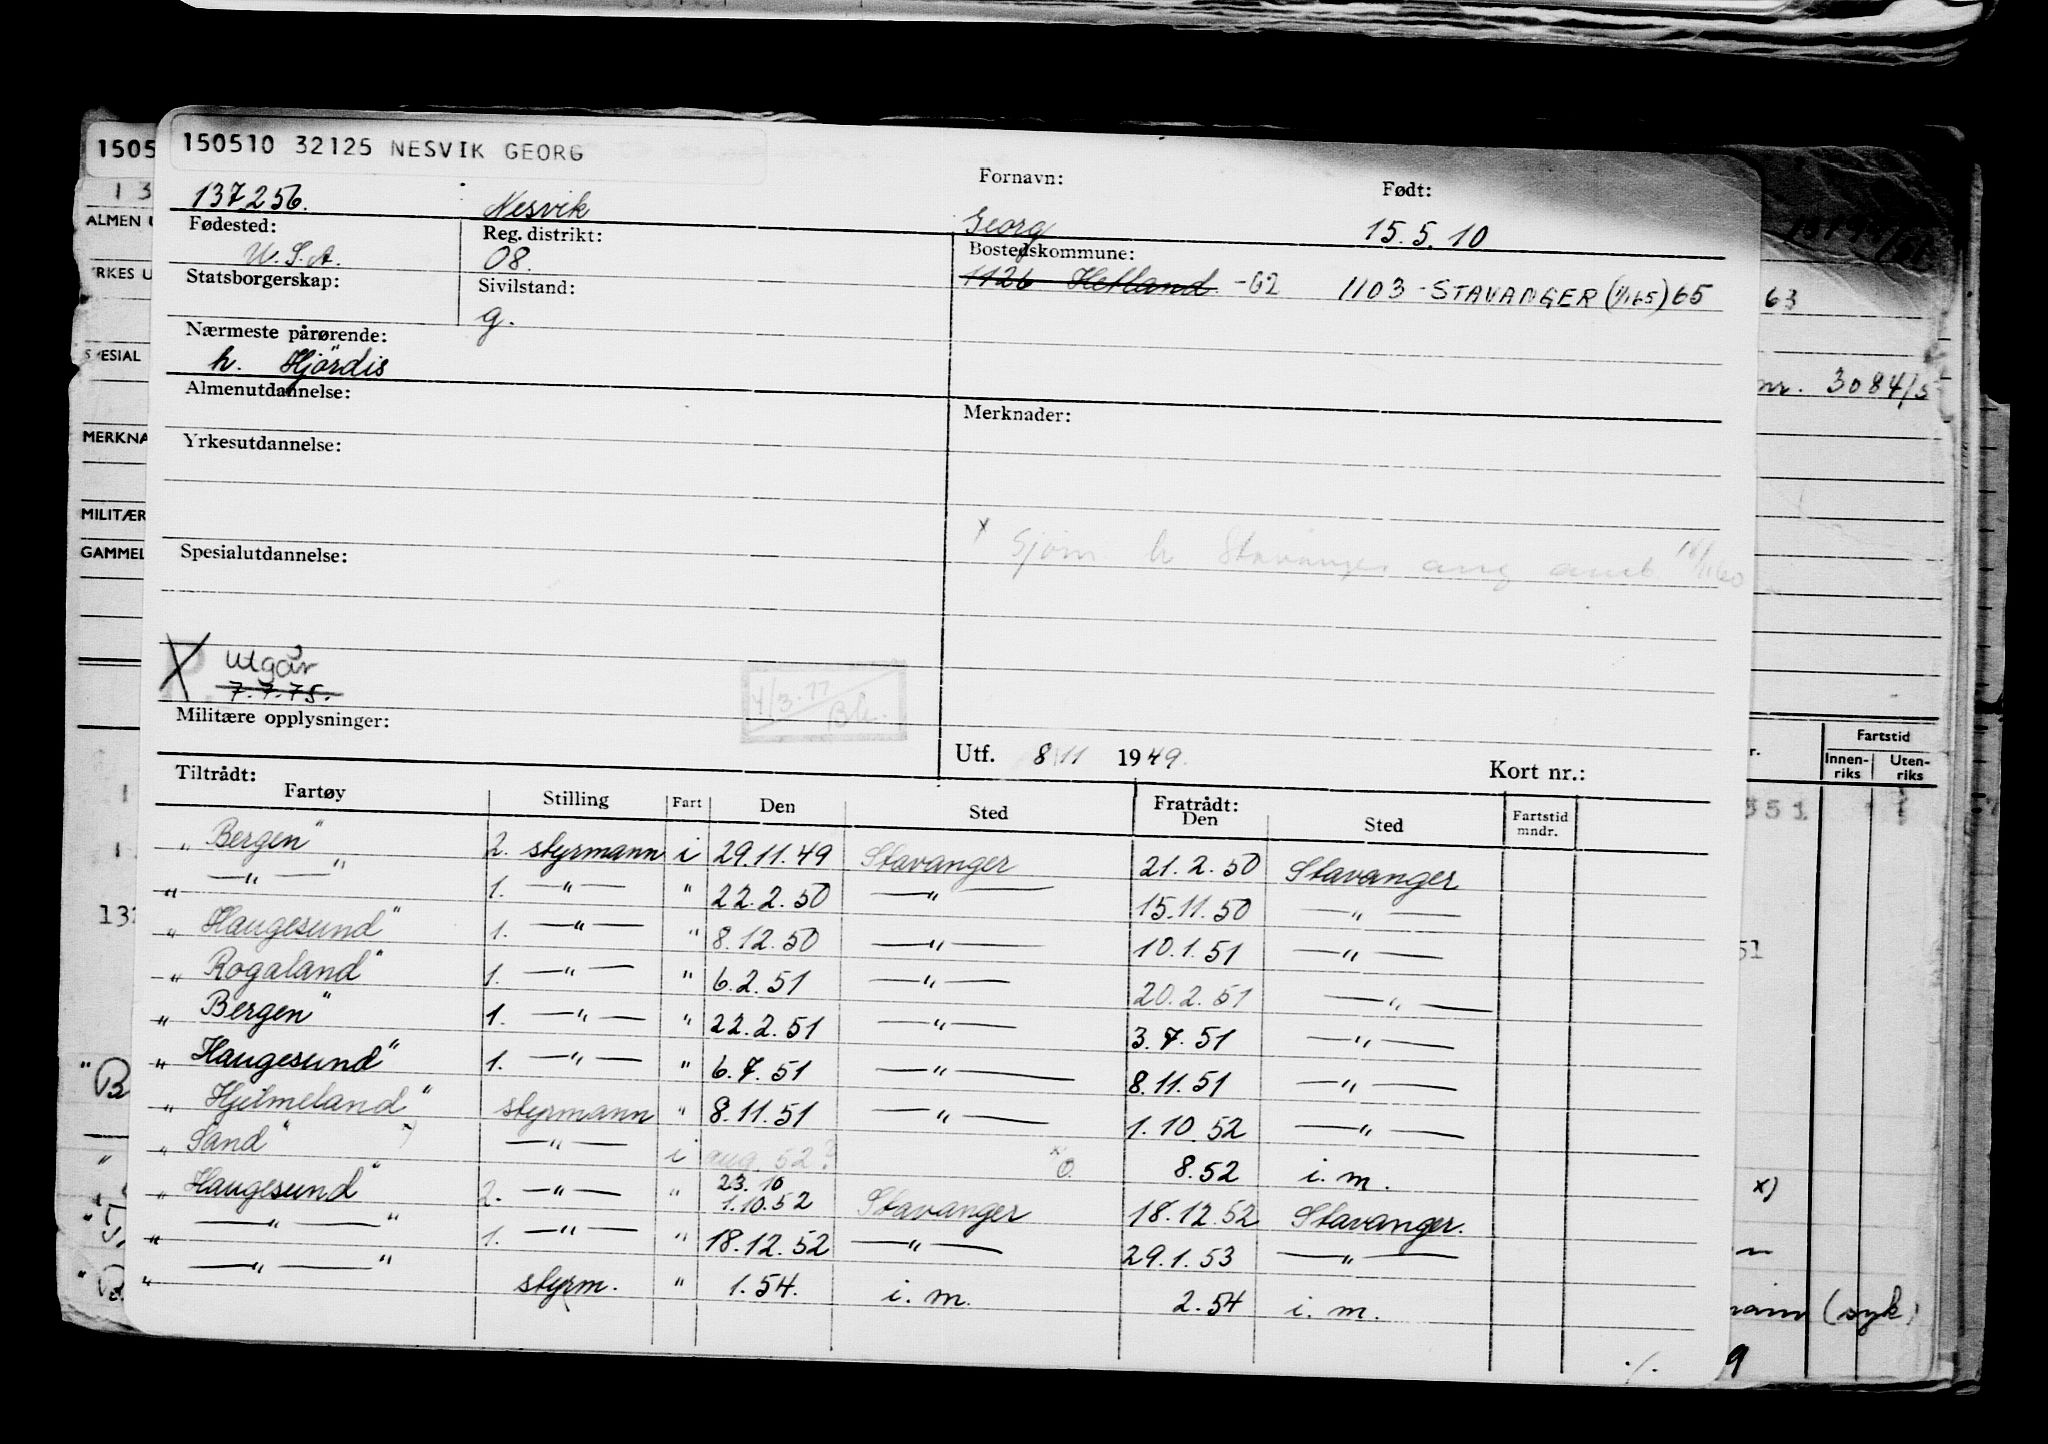 150510 32125 NESVIK GEORG
137256. Nesvik Fornavn: Georg Født: 15.5.10
Fødested: U.S.A. Reg. distrikt: 08. Bostedskommune: 1126 Hetland -62 1103 - STAVANGER (1/1 65) 65 63
Statsborgerskap: Sivilstand: g.
Nærmeste pårørende:
h. Hjördis
nr. 3084/5
Almenutdannelse: Merknader:
Yrkesutdannelse:
x Gjöm h Stavanger ang
Spesialutdannelse:
Utgår
7.7.75.
4/3-77
Militære opplysninger:
Utf. 8/11 1949. Kort nr.:
Tiltrådt: Fratrådt:
Fartøy Stilling Fart Den Sted Den Sted Fartstid mndr.
"Bergen" 2. styrmann i 29.11.49 Stavanger 21.2.50 Stavanger
" —"— " 1. —"— " 22.2.50 —"— 15.11.50 —"—
"Haugesund" 1. —"— " 8.12.50 —"— 10.1.51 —"—
"Rogaland" 1. —"— " 6.2.51 —"— 20.2.51 —"—
"Bergen" 1. —"— " 22.2.51 —"— 3.7.51 —"—
"Haugesund" 1. —"— " 6.7.51 —"— 8.11.51 —"—
"Hjelmeland" styrmann " 8.11.51 —"— 1.10.52 —"—
"Sand" —"— i aug. 52? x) 8.52 i.m.
"Haugesund" 2. —"— " 23.10 1.10.52 Stavanger 18.12.52 Stavanger.
" —"— " 1. —"— " 18.12.52 —"— 29.1.53 —"—
" —"— " styrm. " 1.54. i.m. 2.54 i.m.
./.
1505
13
ALMEN U
YRKES U
SPESIAL
MERKNA
MILITÆR
GAMMEL
132
"B
Fartstid
Innen-riks Uten-riks
351
51
x)
mann (syk)
9